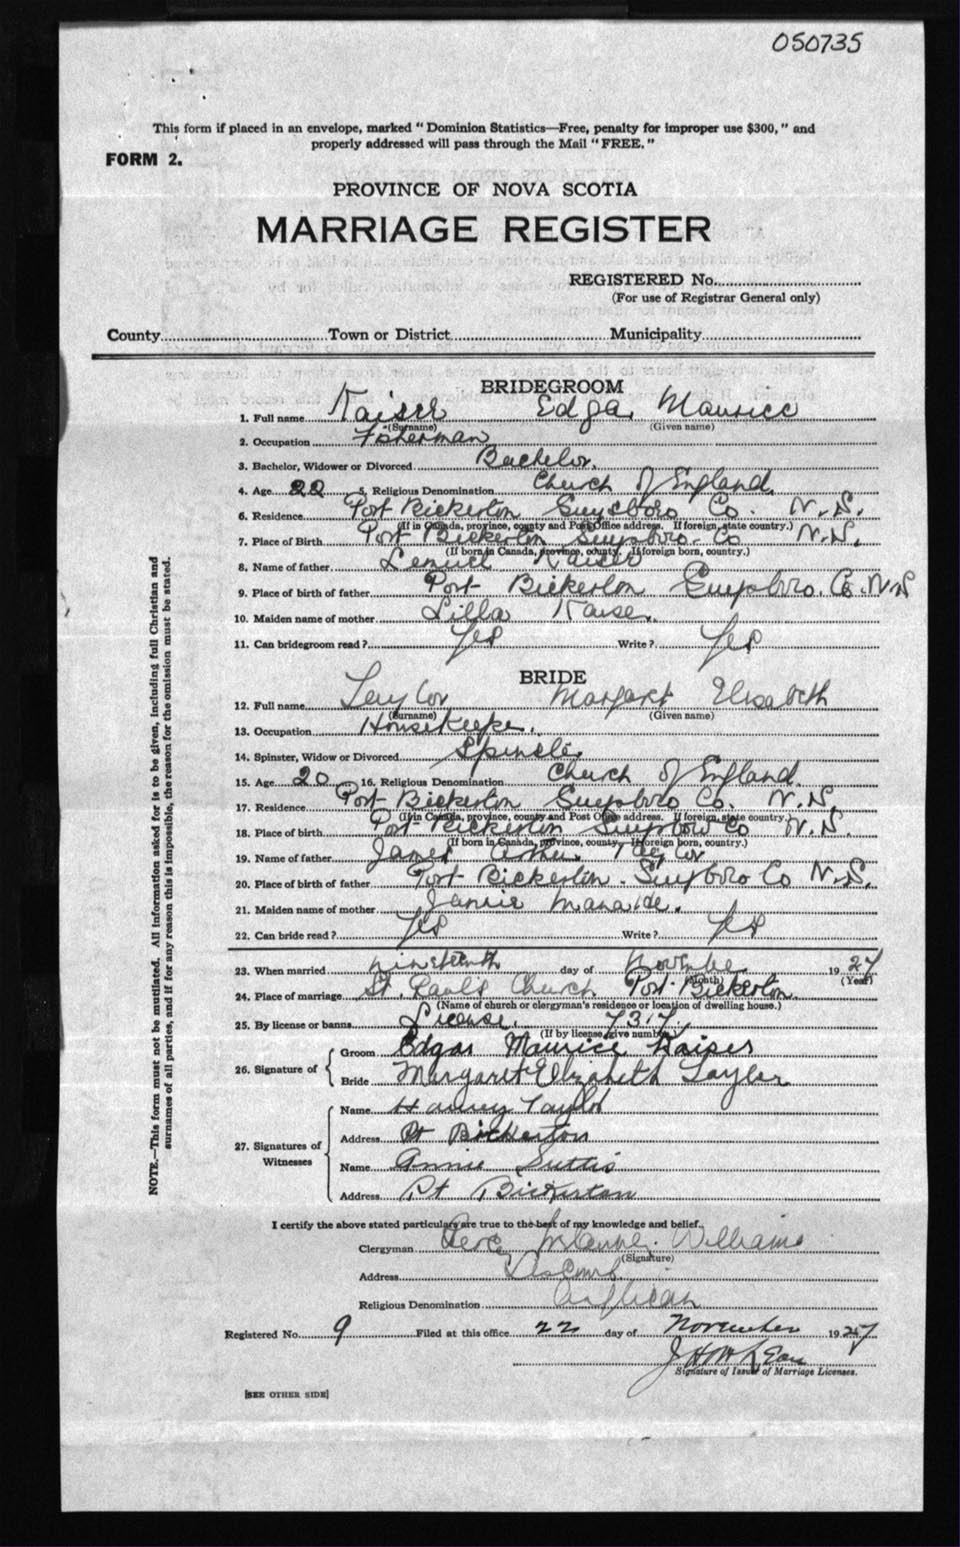 050735
This form if placed in an envelope, marked "Dominion Statistics—Free, penalty for improper use $300," and
properly addressed will pass through the Mail "FREE."
FORM 2.
PROVINCE OF NOVA SCOTIA
MARRIAGE REGISTER
REGISTERED No.
(For use of Registrar General only)
County Town or District Municipality
BRIDEGROOM
1. Full name Kaiser Edgar Maurice
(Surname) (Given name)
2. Occupation Fisherman
3. Bachelor, Widower or Divorced Bachelor.
4. Age 22 5. Religious Denomination Church of England
6. Residence Port Bickerton Guysboro Co. N.S.
(If in Canada, province, county and Post Office address. If foreign, state country.)
7. Place of Birth Port Bickerton Guysboro. Co N.S.
(If born in Canada, province, county. If foreign born, country.)
8. Name of father Lemuel Kaiser
9. Place of birth of father Port Bickerton Guysboro. Co. N.S
10. Maiden name of mother Lilla Kaiser.
11. Can bridegroom read? Yes Write? Yes
BRIDE
12. Full name Taylor Margaret Elisabeth
(Surname) (Given name)
13. Occupation Housekeeper.
14. Spinster, Widow or Divorced Spinster
15. Age 20 16. Religious Denomination Church of England.
17. Residence Port Bickerton Guysboro Co. N.S.
(If in Canada, province, county and Post Office address. If foreign, state country.)
18. Place of birth Port Bickerton Guysboro Co N.S.
(If born in Canada, province, county. If foreign born, country.)
19. Name of father James Taylor
20. Place of birth of father Port Bickerton. Guysboro Co N.S.
21. Maiden name of mother Jannie
22. Can bride read? Yes Write? Yes
23. When married nineteenth day of November 1927
(Month) (Year)
24. Place of marriage St. Pauls Church Port Bickerton.
(Name of church or clergyman's residence or location of dwelling house.)
25. By license or banns License. 7317.
(If by license, give number)
26. Signature of Groom Edgar Maurice Kaiser
Bride Margaret Elizabeth Taylor
27. Signatures of Witnesses Name Harvey Taylor
Address Pt Bickerton
Name Annie Suttis
Address Pt Bickerton
I certify the above stated particulars are true to the best of my knowledge and belief.
Clergyman Williams
(Signature)
Address Liscomb.
Religious Denomination Anglican
Registered No. 9 Filed at this office 22 day of November 1927
Signature of Issuer of Marriage Licenses.
[SEE OTHER SIDE]
NOTE.—This form must not be mutilated. All information asked for is to be given, including full Christian and
surnames of all parties, and if for any reason this is impossible, the reason for the omission must be stated.